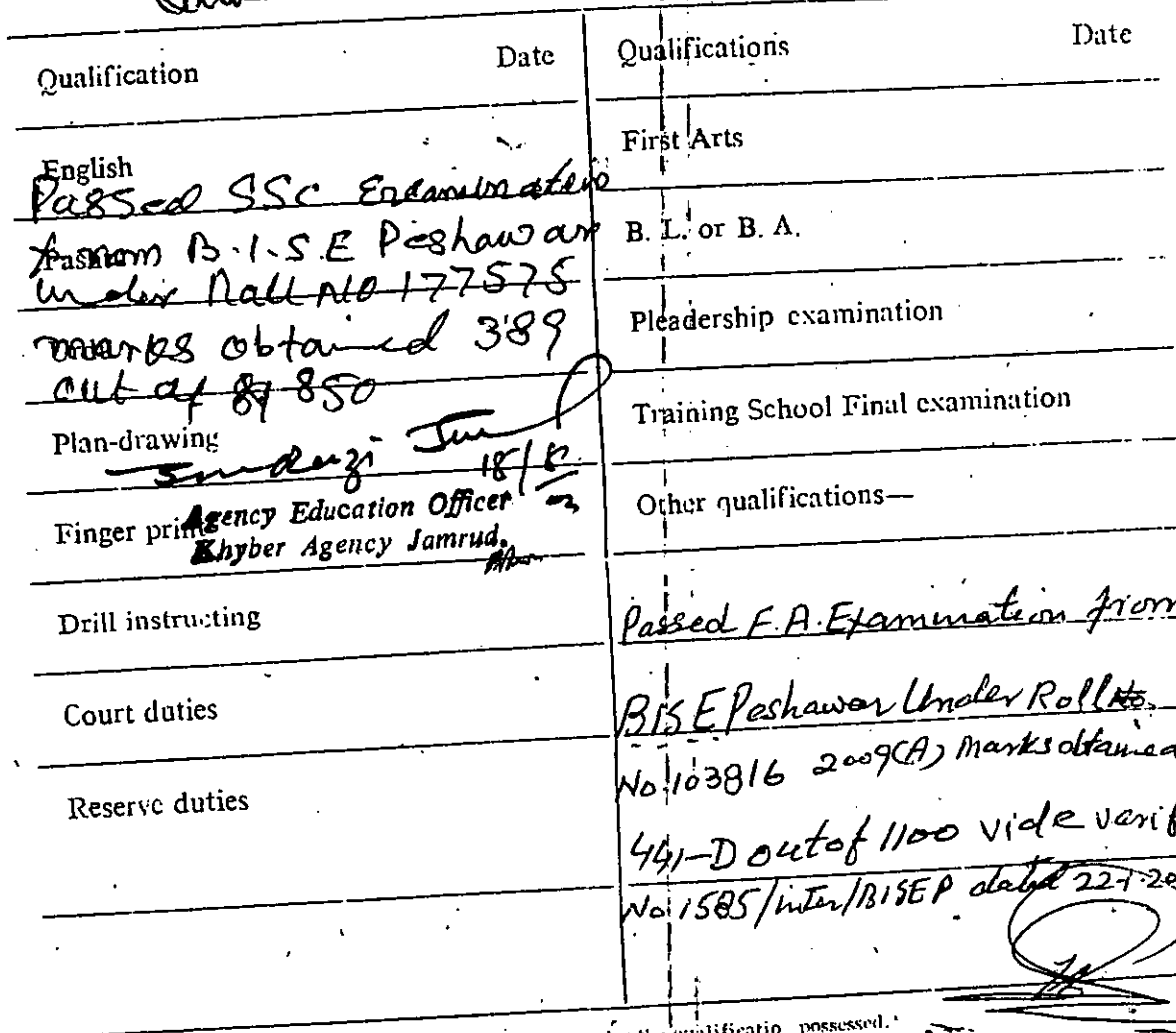 Qualification Date
English
Passed SSC Examination
from B.I.S.E Peshawar
under Roll No 177575
marks obtained 389
out of 850
Plan-drawing
18/8
Finger print
Agency Education Officer
Khyber Agency Jamrud.
Drill instructing
Court duties
Reserve duties
Qualifications Date
First Arts
B. L. or B. A.
Pleadership examination
Training School Final examination
Other qualifications—
Passed F.A. Examination from
BISE Peshawar Under Roll No.
No. 103816 2009(A) Marks obtained
441-D out of 1100 vide verif
No. 1585/inter/BISEP dated 22-1-20
possessed.